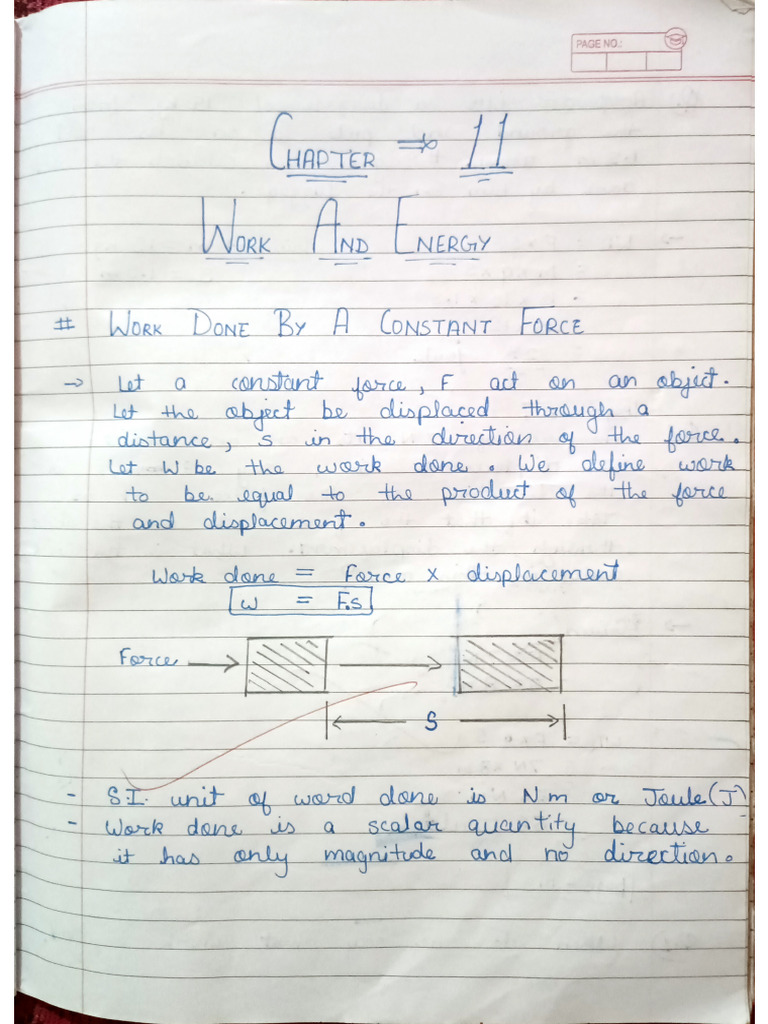 PAGE NO.:
CHAPTER ⇒ 11
WORK AND ENERGY
# WORK DONE BY A CONSTANT FORCE
→ Let a constant force, F act on an object.
Let the object be displaced through a
distance, s in the direction of the force.
Let W be the work done. We define work
to be equal to the product of the force
and displacement.
Work done = Force × displacement
W = F.s
Force
S
- S.I. unit of word done is N m or Joule (J)
- Work done is a scalar quantity because
it has only magnitude and no direction.